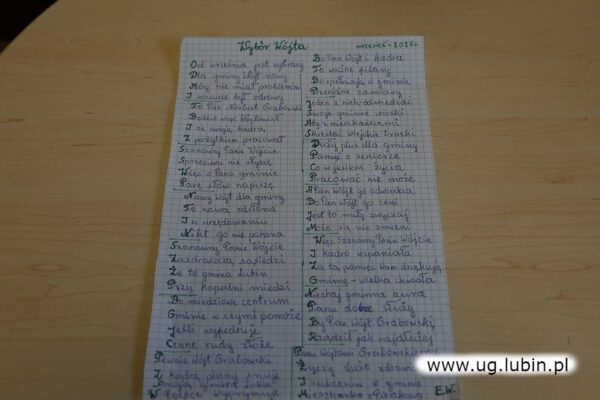 Wybór Wójta
wrzesień - 2025 r.
Od września jest wybrany
Dla gminy Wójt nowy
Aby nie miał problemów
I zawsze był zdrowy
To Pan Norbert Grabowski
Będzie więc Wójtował
I ze swoją kadrą
Z pożytkiem pracował
Szanowny Panie Wójcie
Sprzeciwu nie słyszę
Więc o Pana gminie
Parę słów napiszę
Nowy Wójt dla gminy
To nowa odsłona
I w urzędowaniu
Nikt go nie pokona
Szanowny Panie Wójcie
Zazdroszczą sąsiedzi
Że to gmina Lubin
Przy kopalni miedzi
Bo miedziowe centrum
Gminie w czymś pomoże
Jeśli wykryduje
Cenne rudy złoże
Pewnie Wójt Grabowski
Z kadrą plany snuje
Swoją gminę Lubin
W Polsce wypromuje
Bo Pan Wójt i kadra
To ważne filary
Dopełniają w gminie
Przeróżne zamiary
Jeden z nich odwiedzać
Swoje gminne wioski
Aby z mieszkańcami
Skreślać wiejskie troski
Duży plus dla gminy
Pamięć o seniorze
Co w jesieni życia
Pracować nie może
A Pan Wójt go odwiedza
Bo Pan Wójt go ceni
Jest to miły zwyczaj
Może się nie zmieni
Więc Szanowny Panie Wójcie
I kadro wspaniała
Za tą pamięć Wam dziękują
Gminie - wielka chwała
Niechaj gminna aura
Panu dobrze służy
By Pan Wójt Grabowski
Rządził jak najdłużej
Panu Wójtowi Grabowskiemu
Życzy dużo zdrowia
I sukcesów w gminie
Mieszkanka z
E.W.
www.ug.lubin.pl